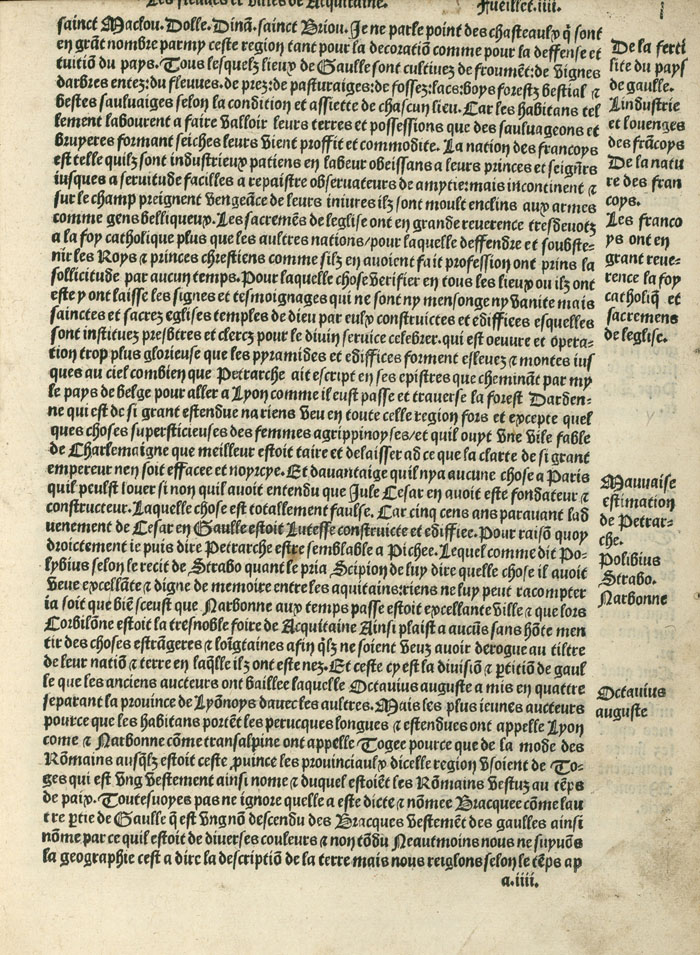 Les fleuves et villes de Acquitaine. Fueillet. iiii.
sainct Maclou. Dolle. Dinã. sainct Briou. Je ne parle point des chasteaulx q̃ sont
en grãt nombre parmy ceste region tant pour la decoratiõ comme pour la deffense et
tuitiõ du pays. Tous lesquelz lieux de Gaulle sont cultiuez de froumẽt: de vignes
darbres entez: du fleuues. de prez: de pasturaiges: de fossez: lacs: boys forestz bestial ⁊
bestes sauluaiges selon la condition et assiette de chascun lieu. Car les habitans tel
lement labourent a faire valloir leurs terres et possessions que des sauluageons et
bruyeres formant seiches leurs vient proffit et commodite. La nation des francoys
est telle quilz sont industrieux patiens en labeur obeissans a leurs princes et seigñrs
iusques a seruitude facilles a repaistre obseruateurs de amytie: mais incontinent ⁊
sur le champ preignent vengeãce de leurs iniures ilz sont moult enclins aux armes
comme gens belliqueux. Les sacremẽs de leglise ont en grande reuerence tresdeuotz
a la foy catholique plus que les aultres nations/pour laquelle deffendre et soubste-
nir les Roys ⁊ princes chrestiens comme silz en auoient fait profession ont prins la
sollicitude par aucun temps. Pour laquelle chose verifier en tous les lieux ou ilz ont
este y ont laisse les signes et tesmoignages qui ne sont ny mensonge ny vanite mais
sainctes et sacrez eglises temples de dieu par eulx construictes et ediffiees esquelles
sont instituez presb̃tres et clercz pour le diuin seruice celebrer. qui est oeuure et opera-
tion trop plus glorieuse que les pyramides et ediffices forment esleuez ⁊ montes ius
ques au ciel combien que Petrarche ait escript en ses epistres que cheminãt par my
le pays de belge pour aller a Lyon comme il eust passe et trauerse la forest Darden-
ne qui est de si grant estendue na riens veu en toute celle region fors et excepte quel
ques choses supersticieuses des femmes agrippinoyses/et quil ouyt vne vile fable
de Charlemaigne que meilleur estoit taire et delaisser ad ce que la clarte de si grant
empereur nen soit effacee et noyrcye. Et dauantaige quil nya aucune chose a Paris
quil peulst louer si non quil auoit entendu que Jule Cesar en auoit este fondateur ⁊
constructeur. Laquelle chose est totallement faulse. Car cinq cens ans parauant lad
uenement de Cesar en Gaulle estoit Lutesse construicte et ediffiee. Pour raisõ quoy
droictement ie puis dire Petrarche estre semblable a Pichee. Lequel comme dit Po-
lybius selon le recit de Strabo quant le pria Scipion de luy dire quelle chose il auoit
veue excellãte ⁊ digne de memoire entre les aquitains: riens ne luy peut racompter
ia soit que biẽ sceust que Narbonne aux temps passe estoit excellante ville ⁊ que lors
Corbilõne estoit la tresnoble foire de Acquitaine Ainsi plaist a aucũs sans hõte men
tir des choses estrãgeres ⁊ loĩgtaines afin q̃lz ne soient veuz auoir derogue au tiltre
de leur natiõ ⁊ terre en laq̃lle ilz ont este nez. Et ceste cy est la diuisiõ ⁊ p̃titiõ de gaul
le que les anciens aucteurs ont baillee laquelle Octauius auguste a mis en quattre
separant la prouince de Lyõnoys dauec les aultres. Mais les plus ieunes aucteurs
pource que les habitans portẽt les perucques longues ⁊ estendues ont appelle Lyon
come ⁊ Narbonne cõme transalpine ont appelle Togee pource que de la mode des
Rõmains ausq̃lz estoit ceste p̃uince les prouinciaulx dicelle region vsoient de To-
ges qui est vng vestement ainsi nome ⁊ duquel estoiẽt les Rõmains vestuz au tẽps
de paix. Toutesuoyes pas ne ignore quelle a este dicte ⁊ nõmee Bracquee cõme lau
tre p̃tie de Gaulle q̃ est vng nõ descendu des Bracques vestemẽt des gaulles ainsi
nõme par ce quil estoit de diuerses couleurs ⁊ non tõdu Neautmoins nous ne suyuõs
la geographie cest a dire la descriptiõ de la terre mais nous reiglons selon le tẽps ap
a.iiii.
De la ferti
lite du pays
de gaulle.
Lindustrie
et louenges
des frãcoys
De la natu
re des fran
coys.
Les franco
ys ont en
grant reue-
rence la foy
catholiq̃ et
sacremens
de leglise.
Mauuaise
estimation
de Petrar-
che.
Polibius
Strabo.
Narbonne
Octauius
auguste